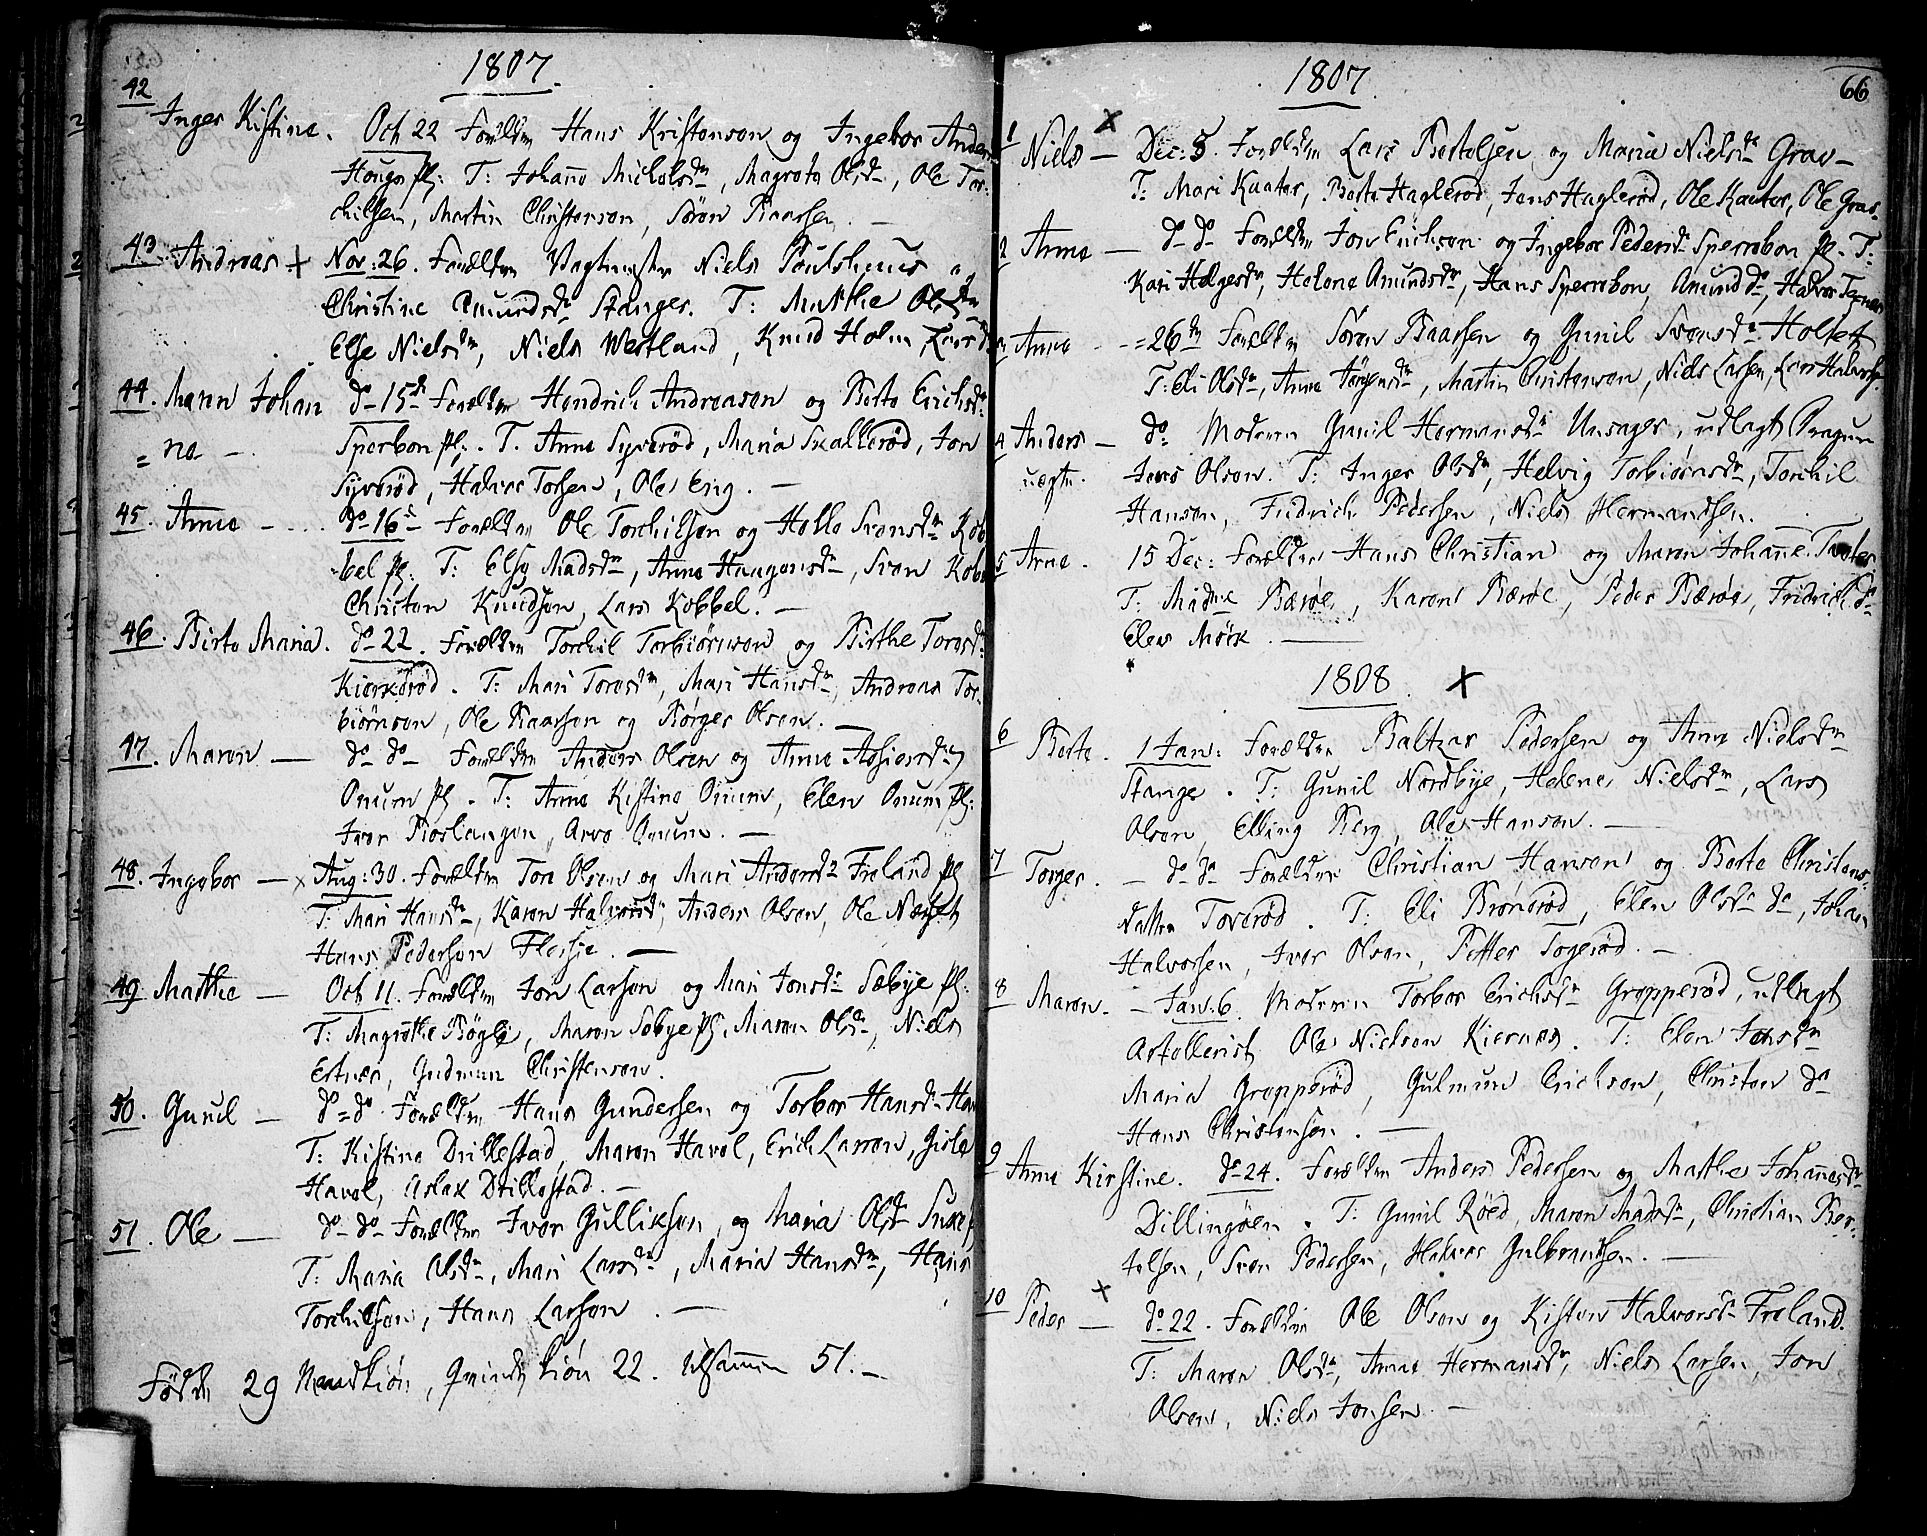 1807
42
Inger Kistine. Oct 22 Forældre Hans Kristenson og Ingebor Anders
Houger pl: T: Johanne Mickelsdtr, Magrete Olsdr, Ole Tor-
chilsen, Martin Christenson, Søren Baarsen —
43 Andreas + Nov: 26. Forældre Vagtmester Niels Poulshuus og
Christine Amundsdr Stanger. T: Marthe Olsdtr
Else Nielsdtr, Niels Westland, Knud Holm, Lars
44. Maren Johan d: 15de Forældre Hendrich Andreasen og Berte Erichsdr
= ne —. Sperbon pl:. T. Anne Syverød, Maria Skallerød, Jon
Syverød, Halvor Torsen, Ole Eng. —
45. Anne — ... do 16 Forældre Ole Torchilsen og Helle Svensdtr Kob
bel pl: T: Elsy Madsdr, Anne Haagensdr, Sven Kobel
Christen Knudsen, Lars Kobbel. —
46. Birte Maria. do 22. Forældre Torchil Torbiørnson og Birthe Toresdr
Kierkerød. T: Mari Toresdtr, Mari Hansdr, Andreas Tor-
biørnson, Ole Baarsen og Børger Olsen. —
47. Maren — do do Forældre Anders Olsen og Anne
Onum pl. T: Anne Kistine Onum, Elen Onum pl:
Iver Roslangen, Arve Onum. —
48. Ingebor — x Aug: 30. Forældre Tore Olsen og Mari Andersdr Froland pl
T: Mari Hansdtr, Karen Halvorsdr, Anders Olsen, Ole Næset
Hans Pederson Flesie. —
49. Marthe — Oct 11. Forældre Jon Larsen og Mari Jonsdr Sæbye pl:
T: Magrethe Bøgli, Maren Sebye pl, Maren Olsdr, Niels
Ertner, Gudmun Christenson.
50. Gunil — do = do. Forældre Hans Gundersen og Torbor Hansdr Hav
T: Kistine Dillestad, Maren Havol, Erich Larson, Gisle
Havol, Aslax Dillestad. —
51. Ole — do do Forældre Iver Gulliksen, og Maria Olsdr
T: Maria Olsdr, Mari Larsdr, Maria Hansdtr, Hans
Torchilson, Hans Larson. —
Fødde 29 Mandkiøn, Qvindekiøn 22. tilsammen 51. —
1807
66
1 Niels x — Dec: 5. Forældre Lars Bertelsen og Maria Nielsdr Grav —
T: Mari Kaater, Berte Haglerød, Jens Haglerød, Ole Kaater, Ole Grav.
2 Anne — do do Forældre Jon Erichson og Ingebor Pedersdr Sperrebon pl. T:
Kari Helgesdr, Helene Amundsdtr, Hans Sperrebon, Amund do, Halvor
3 Anne - - = 26de Forældre Søren Baarsen og Gunil Svensdr Holtet
T: Eli Olsdtr, Anne Jørgensdtr, Martin Christenson, Niels Larsen, Lars Halvorsen
4 Anders — do Moderen Gunil Hermansdr Unsager, udlagt Dragun
uægte. Jens Olsen. T: Inger Olsdtr, Helvig Torbiørnsdr, Torchil
Hanson, Fridrich Pedersen, Niels Hermandsen. —
5 Arne. 15 Dec: Forældre Hans Christian og Maren Johanne
T: Madme Bærøe, Karen Bærøe, Peder Bærøe, Fridrich do
Eler Mørk. —
1808. x
6 Berte. 1 Jan: Forældre Baltzar Pedersen og Anne Nielsdtr
Stanger. T: Gunil Nordbye, Helene Nielsdtr, Lars
Olson, Elling Berg, Ole Hanson. —
7 Torger. — do do Forældre Christian Hansen og Berte Christens-
datter Toverød. T: Eli Brønerød, Elen Olsdr do, Johan
Halvorsen, Iver Olson, Petter Togerød. —
8 Maren. — Jan: 6. Moderen Torbor Erichsdr Gropperød, udlagt
Artollerist Ole Nielson Kiernes. T: Elen Jensdtr
Maria Gropperød, Gulmun Erickson, Christen do
Hans Christensen. —
9 Anne Kirstine. do 24. Forældre Anders Pedersen og Marthe Johannesdr
Dillingøen. T: Gunil Røed, Maren Madsdr, Christian Ber-
telsen, Sven Pedersen, Halvor Gulbrandsen. —
10 Peder x — do 22. Forældre Ole Olson og Kisten Halvorsdr Froland.
T: Maren Olsdr, Anne Hermansdr, Niels Larsen, Jon
Olsen, Niels Jonsen. —